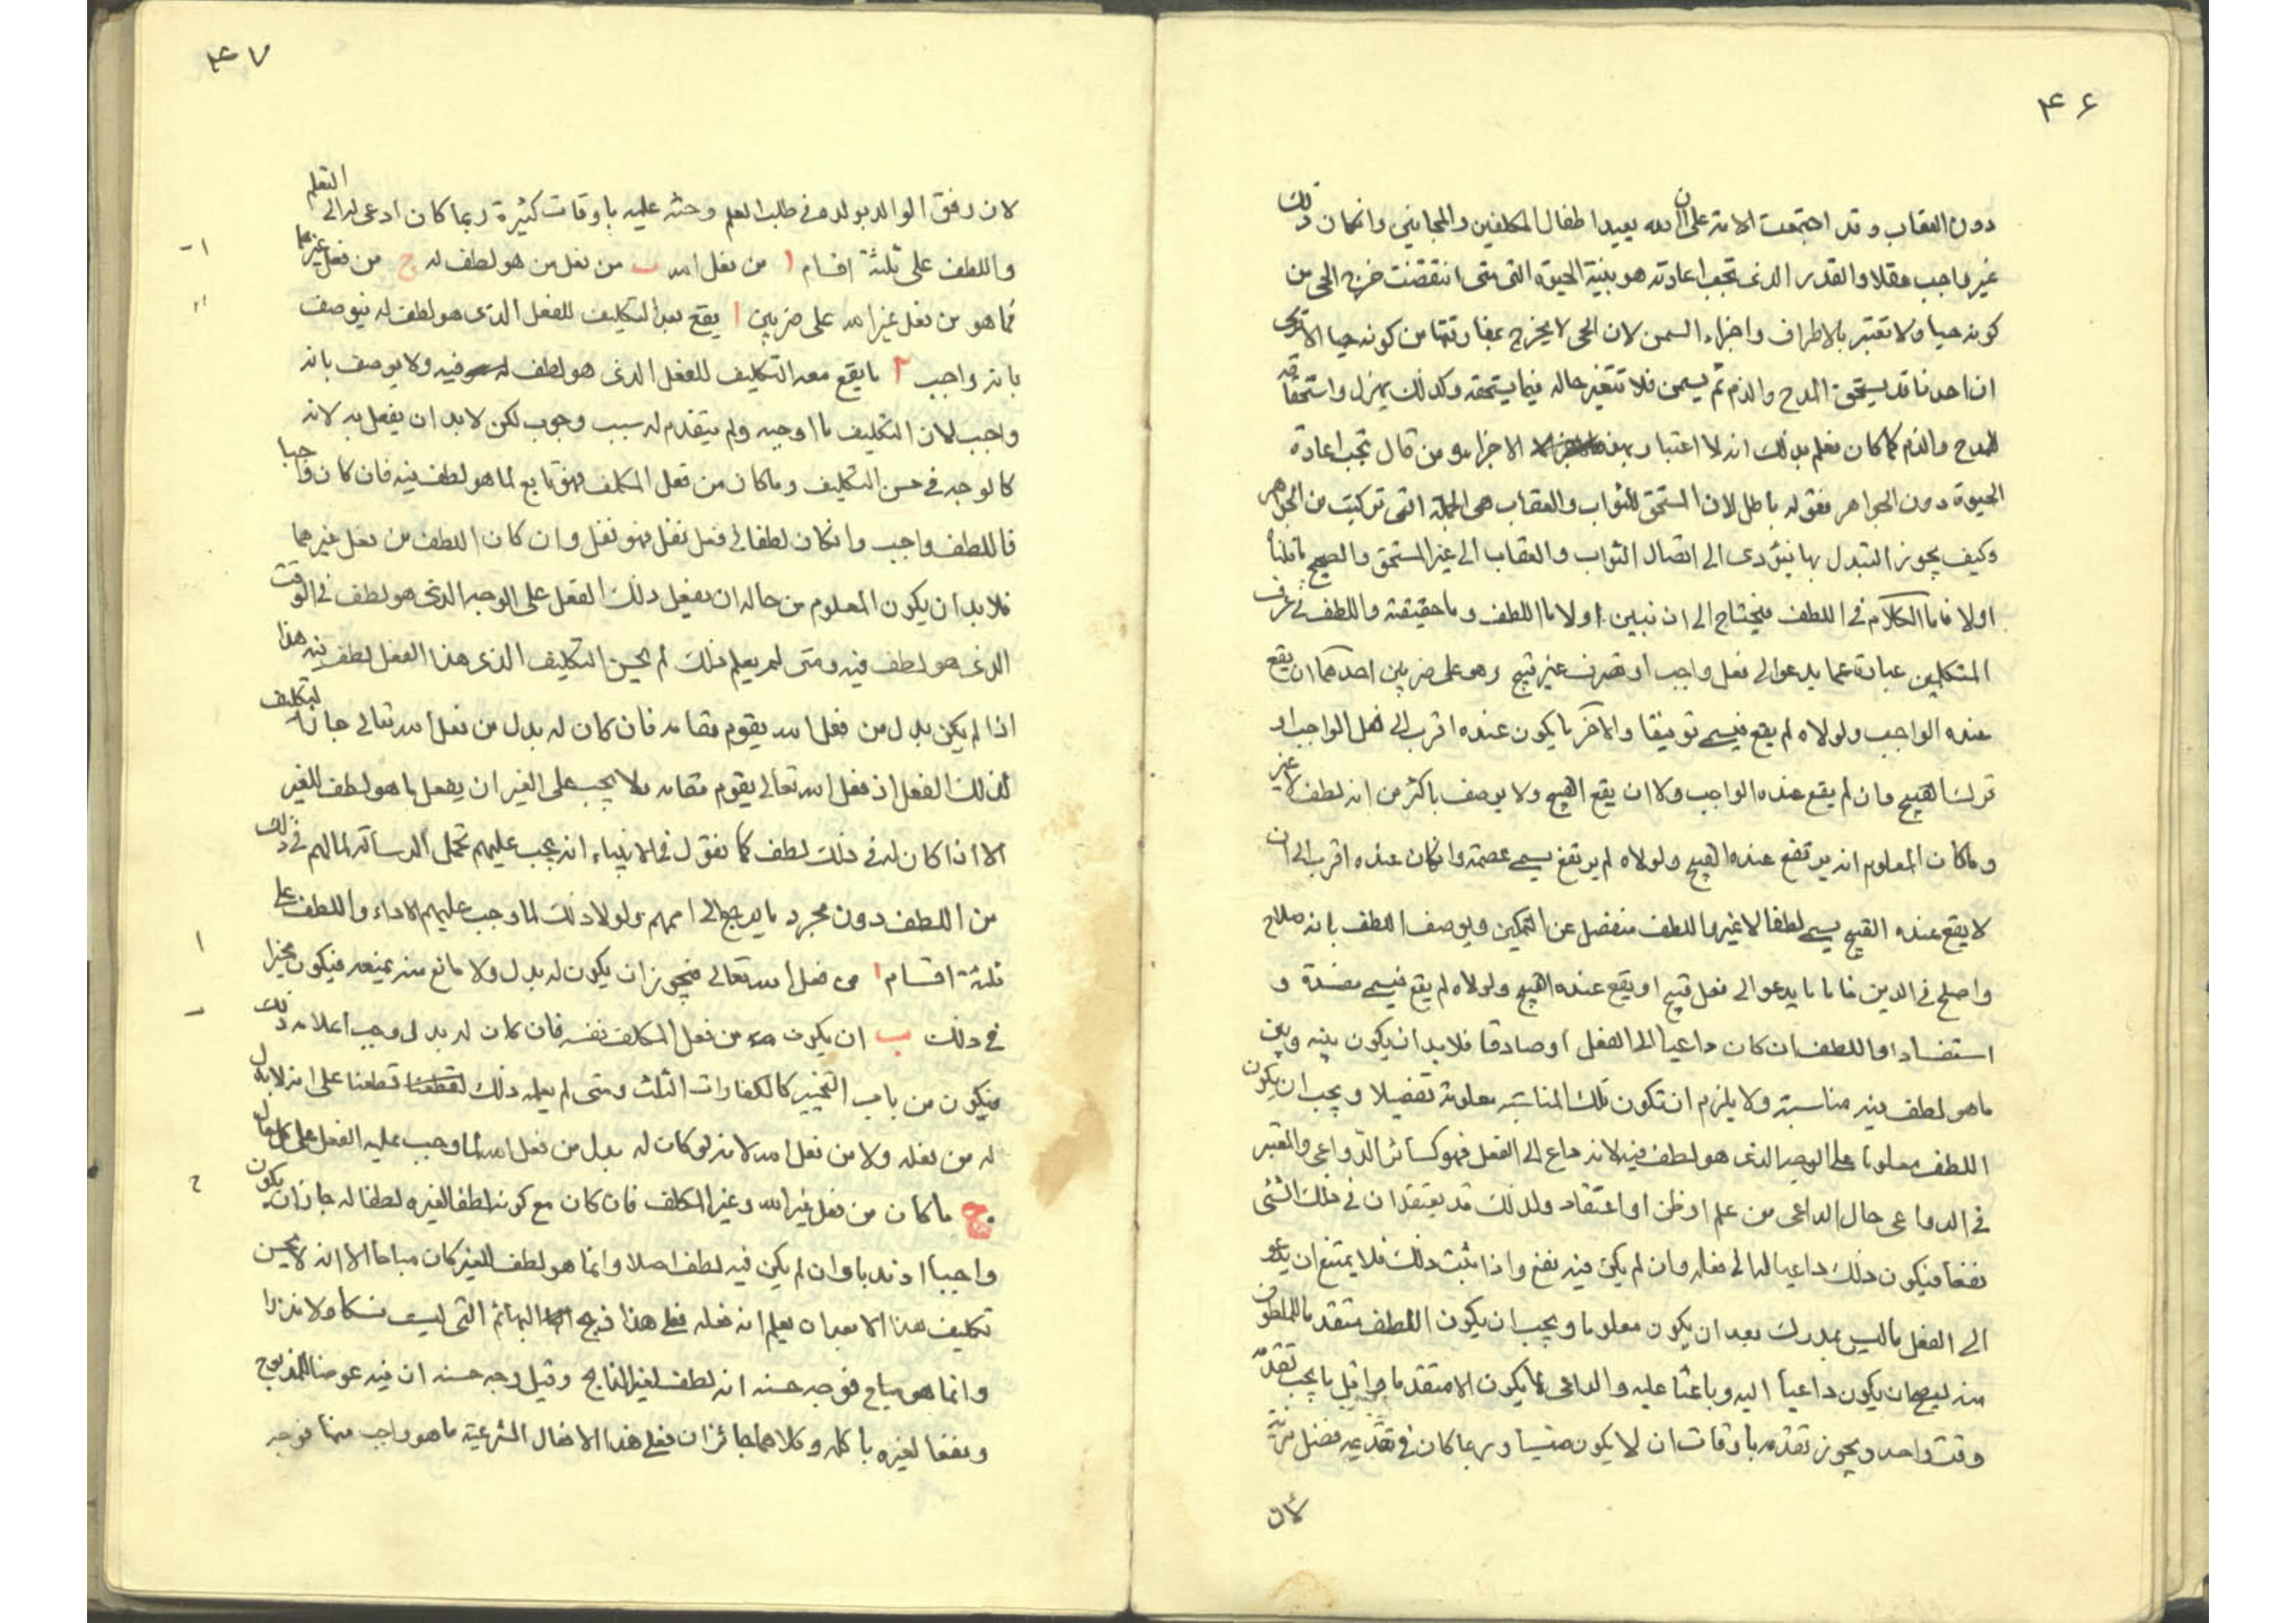 ۴۶
دون العقاب وقد اجتمعت الامة على ان الله يعيد اطفال المكلفين والمجانين وانكان ذلك
غير واجب عقلا والقدر الذى تجب اعادته هو بنية الحيوة التى متى انتقضت خرج الحى من
كونه حيا ولا تعتبر بالاطراف واجزاء السمن لان الحى لا يخرج بمفارقتها من كونه حيا الا ترى
ان احدنا قد يستحق المدح والذم ثم يسمن فلا تتغير حاله فيما يستحقه وكذلك يهزل واستحقاقه
للمدح والذم كما كان فعلم بذلك انه لا اعتبار بهذه الاجزاء ومن قال تجب اعادة
الحيوة دون الجواهر فقوله باطل لان المستحق للثواب والعقاب هى الجملة التى تركبت من الجواهر
وكيف يجوز التبدل بها فيؤدى الى اتصال الثواب والعقاب الى غير المستحق والصحيح ما قلناه
اولا فاما الكلام فى اللطف فيحتاج الى ان نبين اولا ما اللطف وما حقيقته واللطف فى عرف
المتكلمين عبارة عما يدعو الى فعل واجب او يصرف عن قبيح وهو على ضربين احدهما ان يقع
عنده الواجب ولولاه لم يقع فيسمى توفيقا والآخر ما يكون عنده اقرب الى فعل الواجب او
ترك القبيح وان لم يقع عنده الواجب ولا ان يقع القبيح ولا يوصف باكثر من انه لطف لا غير
وما كان المعلوم انه يرتفع عنده القبيح ولولاه لم يرتفع يسمى عصمة وانكان عنده اقرب الى ان
لا يقع عنده القبيح يسمى لطفا لا غير واللطف منفصل عن التمكين ويوصف اللطف بانه صلاح
واصلح فى الدين فاما ما يدعو الى فعل قبيح او يقع عنده القبيح ولولاه لم يقع فيسمى مفسدة و
استفسادا واللطف ان كان داعيا الى الفعل او صادقا فلا بد ان يكون بينه وبين
ما هو لطف فيه مناسبة ولا يلزم ان تكون تلك المناسبة معلومة تفصيلا ويجب ان يكون
اللطف معلوما على الوجه الذى هو لطف فيه لانه داع الى الفعل فهو كسائر الدواعى والمعتبر
فى الدواعى حال الداعى من علم او ظن او اعتقاد ولذلك قد يعتقد ان فى ذلك الشئ
نفعا فيكون ذلك داعيا له الى فعله وان لم يكن فيه نفع واذا ثبت ذلك فلا يمتنع ان يدعو
الى الفعل ما ليس بمدرك بعد ان يكون معلوما ويجب ان يكون اللطف متقدما للملطوف
منه ليصح ان يكون داعيا اليه وباعثا عليه والداعى لا يكون الا متقدما واقل ما يجب تقدمه
وقت واحد ويجوز تقدمه باوقات ان لا يكون منسيا وربما كان فى تقديمه فضل مزية
لان
۴۷
لان رفق الوالد بولده فى طلب العلم وحثه عليه باوقات كثيرة ربما كان ادعى له الى التعلم
واللطف على ثلثة اقسام ا من فعل الله ب من فعل من هو لطف له ج من فعل غيرهما
فما هو من فعل غير الله على ضربين ا يقع بعد التكليف للفعل الذى هو لطف له فيوصف
بانه واجب ۲ ما يقع معه التكليف للفعل الذى هو لطف فيه ولا يوصف بانه
واجب لان التكليف ما اوجبه ولم يتقدم له سبب وجوب لكن لا بد ان يفعل به لانه
كالوجه فى حسن التكليف وما كان من فعل المكلف فهو تابع لما هو لطف فيه فان كان واجبا
فاللطف واجب وانكان لطفا فى فعل نفل فهو نفل وان كان اللطف من فعل غيرهما
فلا بد ان يكون المعلوم من حاله ان يفعل ذلك الفعل على الوجه الذى هو لطف فى الوقت
الذى هو لطف فيه ومتى لم يعلم ذلك لم يحسن التكليف الذى هذا الفعل لطف فيه هذا
اذا لم يكن بدل من فعل الله يقوم مقامه فان كان له بدل من فعل الله تعالى جاز التكليف
لذلك الفعل اذ فعل الله تعالى يقوم مقامه ولا يجب على الغير ان يفعل ما هو لطف للغير
الا اذا كان له فى ذلك لطف كما نقول فى الانبياء انه يجب عليهم تحمل الرسالة لما لهم فى ذلك
من اللطف دون مجرد ما يرجع الى اممهم ولولا ذلك لما وجب عليهم الاداء واللطف على
ثلثة اقسام ا من فعل الله تعالى فيجوز ان يكون له بدل ولا مانع منه يمنعه فيكون مخيرا
فى ذلك ب ان يكون من فعل المكلف نفسه فان كان له بدل وجب اعلامه ذلك
فيكون من باب التخيير كالكفارات الثلث ومتى لم يعلمه ذلك قطعنا على انه لا بدل
له من فعله ولا من فعل الله لانه لو كان له بدل من فعل الله لما وجب عليه الفعل على كل حال
ج ما كان من فعل غير الله وغير المكلف فان كان مع كونه لطفا لغيره لطفا له جاز ان يكون
واجبا او ندبا وان لم يكن فيه لطف اصلا وانما هو لطف للغير كان مباحا الا انه لا يحسن
تكليف هذا الا بعد ان يعلم انه يفعله فعلى هذا ذبح البهائم التى ليست نسكا ولا نذرا
وانما هو مباح فوجه حسنه انه لطف لغير الذابح وقيل وجه حسنه ان فيه عوضا للمذبوح
ونفعا لغيره باكله وكلاهما جائزان فعلى هذا الافعال الشرعية ما هو واجب منها فوجه